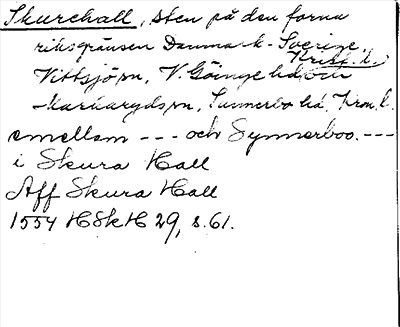 Skurehall, sten på den forna
riksgränsen Danmark - Sverige,
Krist. l.
Vittsjö sn, V. Göinge hd, och
Markaryds sn, Sunnerbo hd, Kron. l.
emellam --- och Synnerboo. ---
i Skura Hall
Aff Skura Hall
1554 HSkH 29, s. 61.